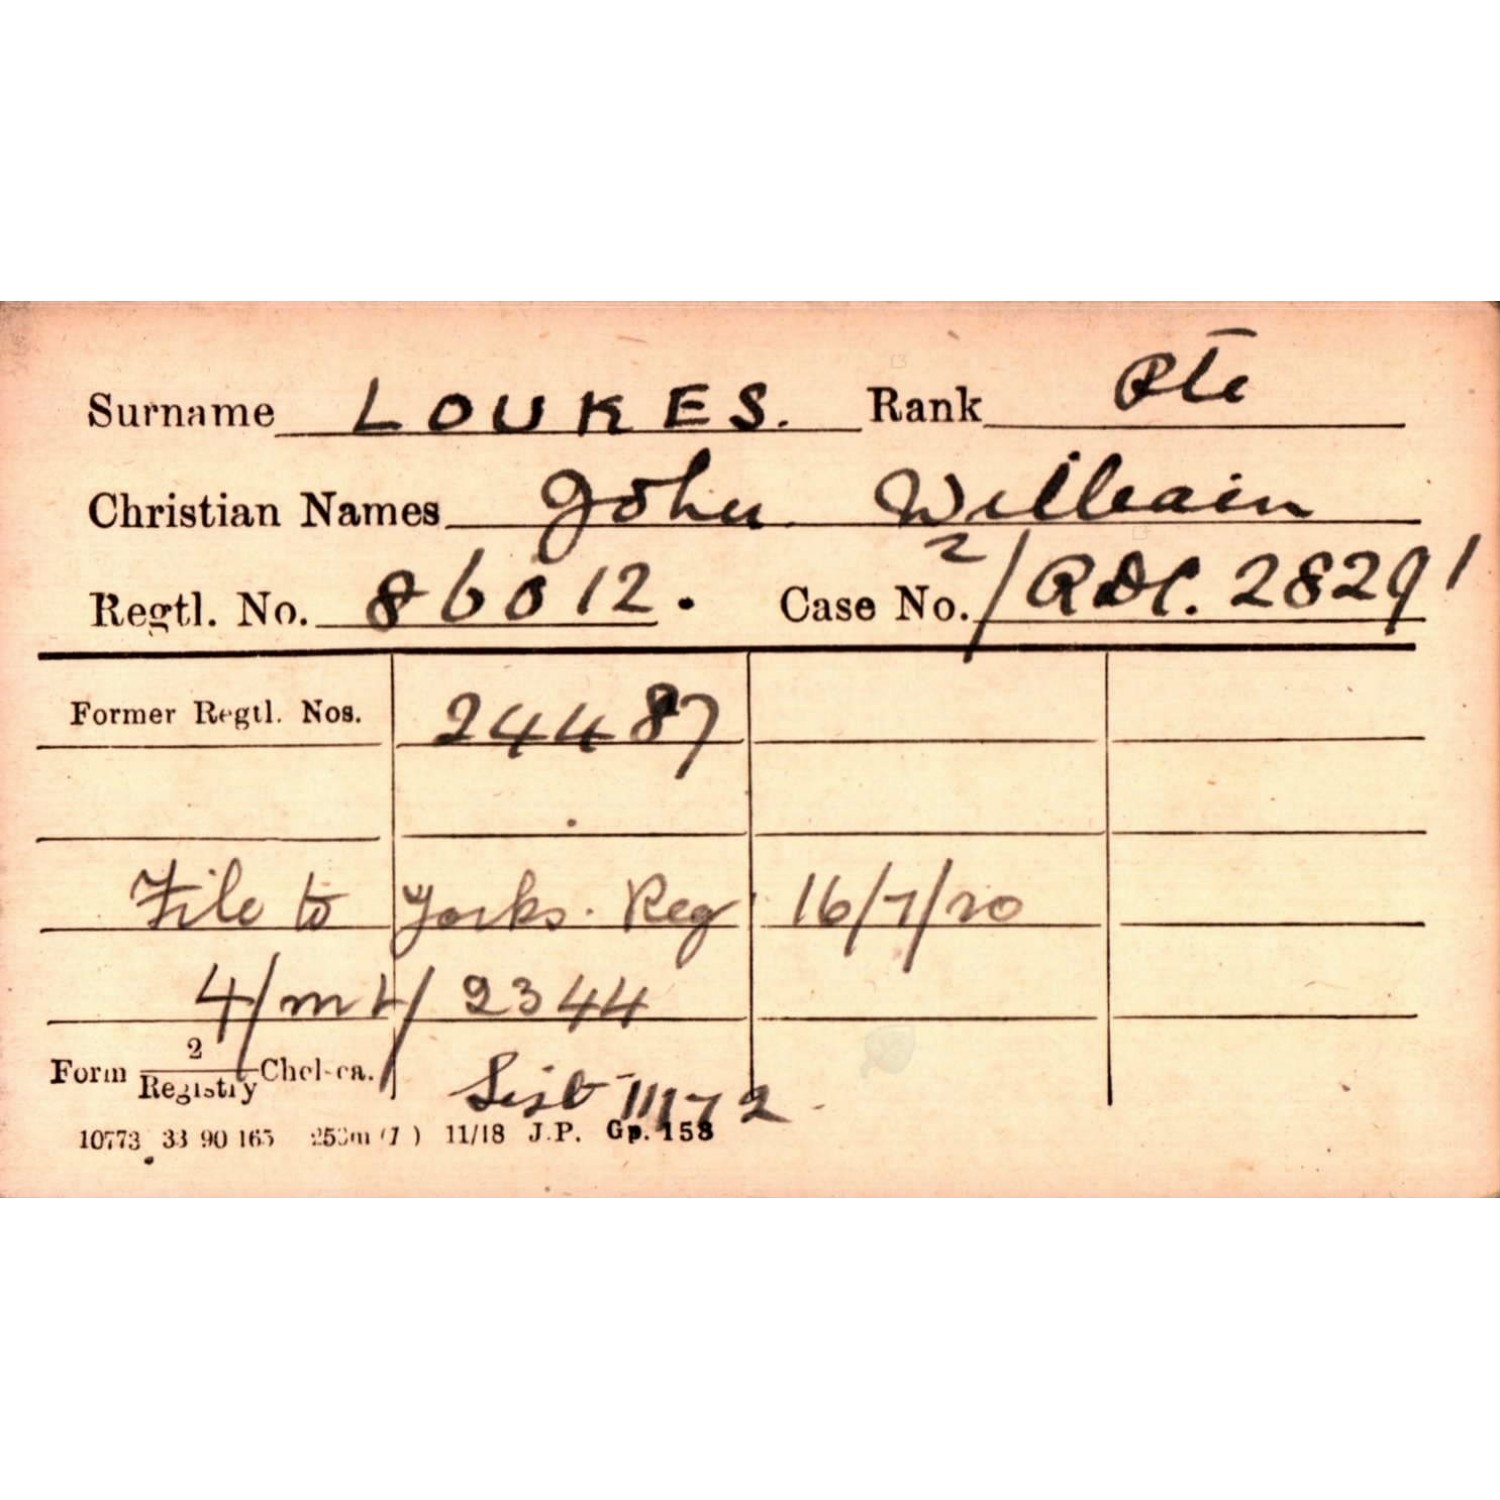 Surname LOUKES. Rank Pte
Christian Names John William
Regtl. No. 86012. Case No. 2/RDC. 28291
Former Regtl. Nos. 24487
File to Yorks. Reg 16/7/20
4/ML/ 2344
Form 2/Registry Chelsea.
List 11172
10773 33 90 165 250m (7) 11/18 J.P. Gp. 158